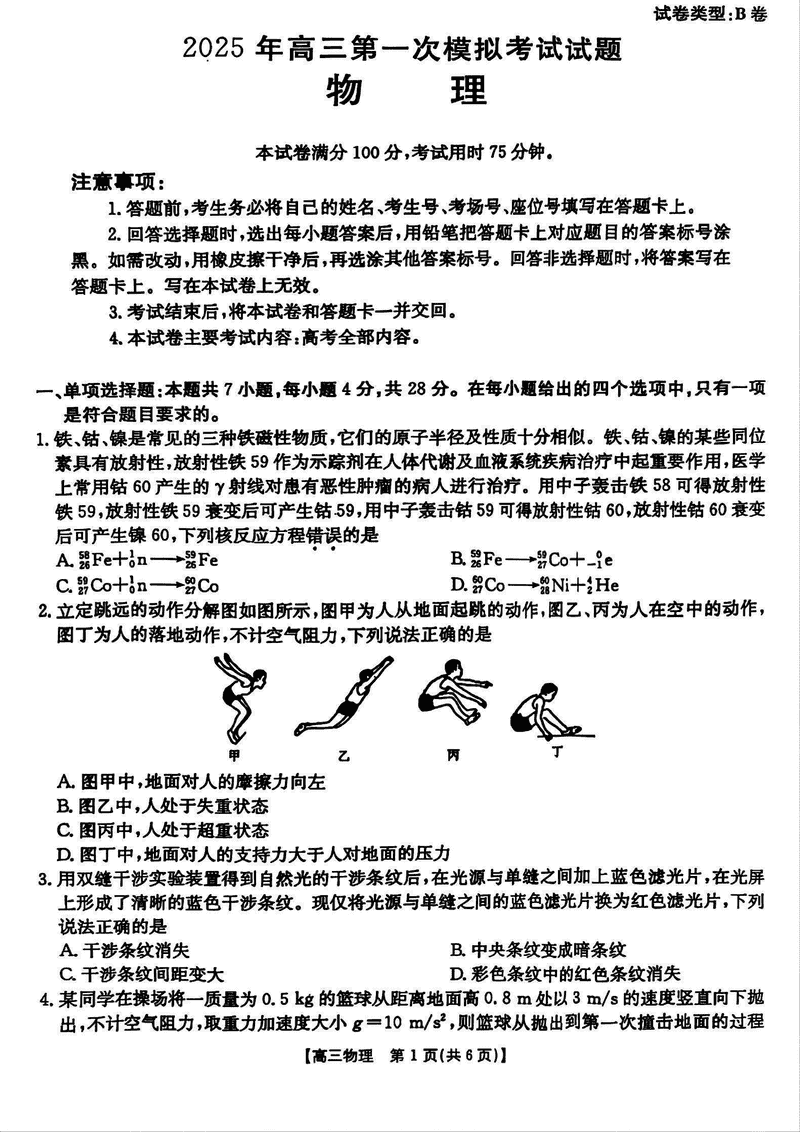 试卷类型:B卷
2025年高三第一次模拟考试试题
物 理
本试卷满分100分,考试用时75分钟。
注意事项:
1.答题前,考生务必将自己的姓名、考生号、考场号、座位号填写在答题卡上。
2.回答选择题时,选出每小题答案后,用铅笔把答题卡上对应题目的答案标号涂
黑。如需改动,用橡皮擦干净后,再选涂其他答案标号。回答非选择题时,将答案写在
答题卡上。写在本试卷上无效。
3.考试结束后,将本试卷和答题卡一并交回。
4.本试卷主要考试内容:高考全部内容。
一、单项选择题:本题共7小题,每小题4分,共28分。在每小题给出的四个选项中,只有一项
是符合题目要求的。
1.铁、钴、镍是常见的三种铁磁性物质,它们的原子半径及性质十分相似。铁、钴、镍的某些同位
素具有放射性,放射性铁59作为示踪剂在人体代谢及血液系统疾病治疗中起重要作用,医学
上常用钴60产生的γ射线对患有恶性肿瘤的病人进行治疗。用中子轰击铁58可得放射性
铁59,放射性铁59衰变后可产生钴59,用中子轰击钴59可得放射性钴60,放射性钴60衰变
后可产生镍60,下列核反应方程错误的是
A. ⁵⁸₂₆Fe+¹₀n⟶⁵⁹₂₆Fe B. ⁵⁹₂₆Fe⟶⁵⁹₂₇Co+⁰₋₁e
C. ⁵⁹₂₇Co+¹₀n⟶⁶⁰₂₇Co D. ⁶⁰₂₇Co⟶⁶⁰₂₈Ni+⁴₂He
2.立定跳远的动作分解图如图所示,图甲为人从地面起跳的动作,图乙、丙为人在空中的动作,
图丁为人的落地动作,不计空气阻力,下列说法正确的是
甲 乙 丙 丁
A. 图甲中,地面对人的摩擦力向左
B. 图乙中,人处于失重状态
C. 图丙中,人处于超重状态
D. 图丁中,地面对人的支持力大于人对地面的压力
3.用双缝干涉实验装置得到自然光的干涉条纹后,在光源与单缝之间加上蓝色滤光片,在光屏
上形成了清晰的蓝色干涉条纹。现仅将光源与单缝之间的蓝色滤光片换为红色滤光片,下列
说法正确的是
A. 干涉条纹消失 B. 中央条纹变成暗条纹
C. 干涉条纹间距变大 D. 彩色条纹中的红色条纹消失
4.某同学在操场将一质量为0.5 kg的篮球从距离地面高0.8 m处以3 m/s的速度竖直向下抛
出,不计空气阻力,取重力加速度大小g=10 m/s²,则篮球从抛出到第一次撞击地面的过程
【高三物理 第1页(共6页)】